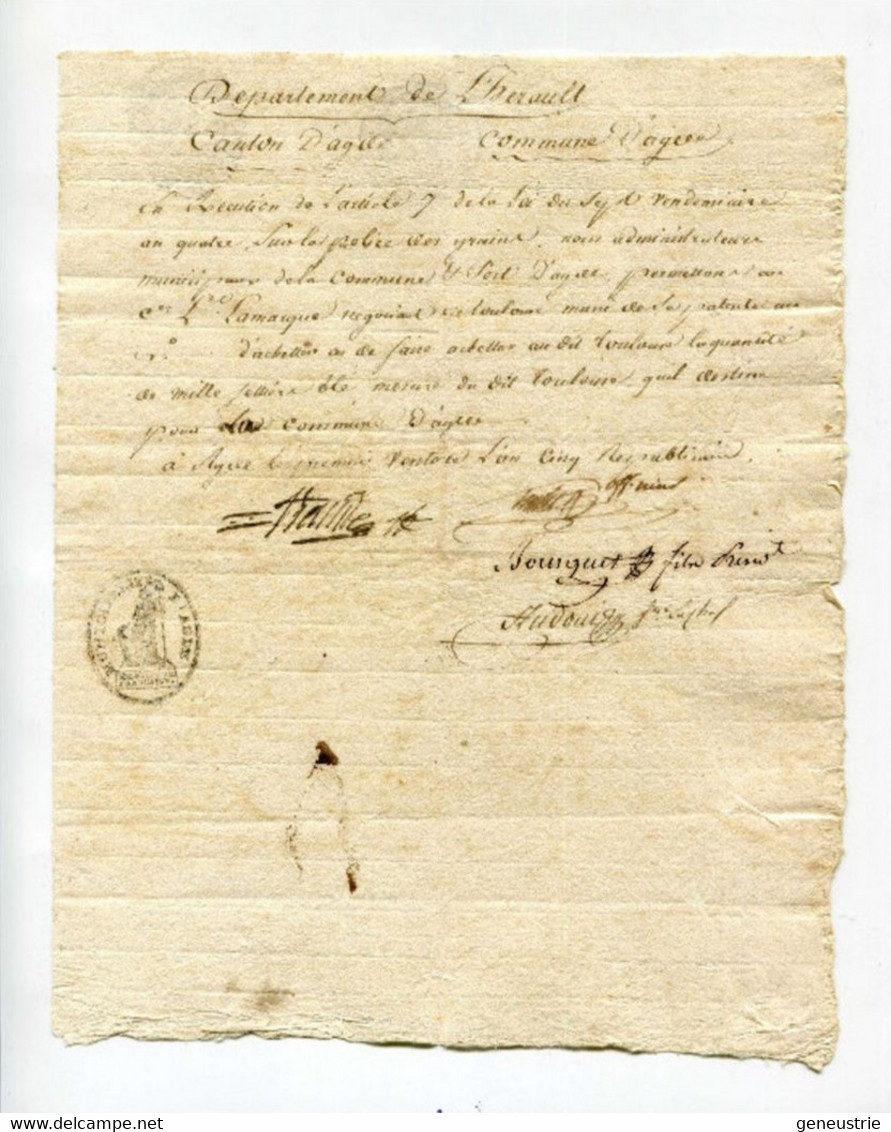 Departement de L'herault
Canton D'agde Commune D'agde
en Execution de L'article 7 de la Loi du Sept Vendemiaire
an quatre, Sur la police des grains, nous administrateurs
municipaux de la Commune & Port D'agde, permettons au
Cen Lamarque negociant de toulouse muni de Sa patente au
N.o D'achetter ou de faire achetter au dit toulouse la quantité
de mille settiers blé mesure du dit toulouse qu'il destine
pour la commune D'agde
à Agde le premier Ventose L'an Cinq Republicain.
Bousquet fils
Audouig
geneustrie